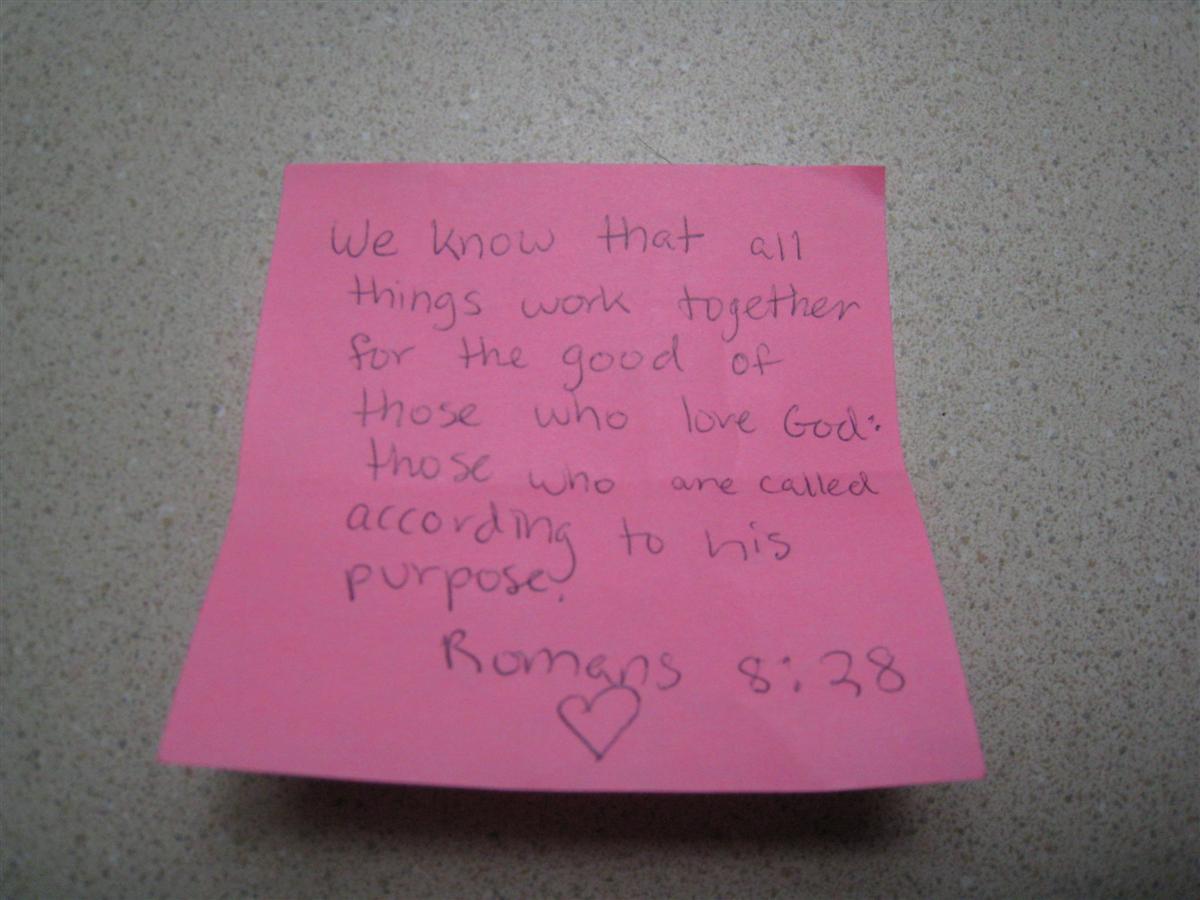 We know that all
things work together
for the good of
those who love God:
those who are called
according to his
purpose.
Romans 8:28